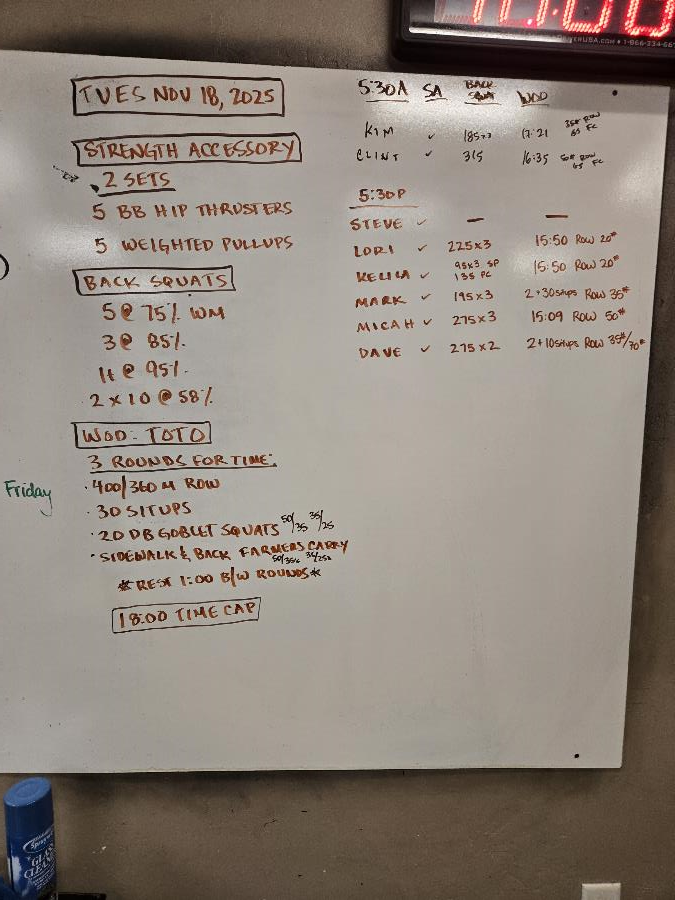 11:00
TUES NOV 18, 2025
STRENGTH ACCESSORY
2 SETS
5 BB HIP THRUSTERS
5 WEIGHTED PULLUPS
BACK SQUATS
5 @ 75% WM
3 @ 85%
1+ @ 95%
2 x 10 @ 58%
WOD: TOTO
3 ROUNDS FOR TIME:
Friday
· 400/360 M ROW
· 30 SITUPS
· 20 DB GOBLET SQUATS 50/35 35/25
· SIDEWALK & BACK FARMERS CARRY
50/35s 35/25s
* REST 1:00 B/W ROUNDS *
18:00 TIME CAP
5:30A SA BACK SQUAT WOD
KIM ✓ 185x3 17:21 35# ROW 65 FC
CLINT ✓ 315 16:35 50# ROW 65 FC
5:30P
STEVE ✓ — —
LORI ✓ 225x3 15:50 ROW 20#
KELICA ✓ 95x3 SP 135 PC 15:50 ROW 20#
MARK ✓ 195x3 2+30situps ROW 35#
MICAH ✓ 275x3 15:09 ROW 50#
DAVE ✓ 275x2 2+10situps ROW 35#/70#
Sprayway
GLASS
CLEANER